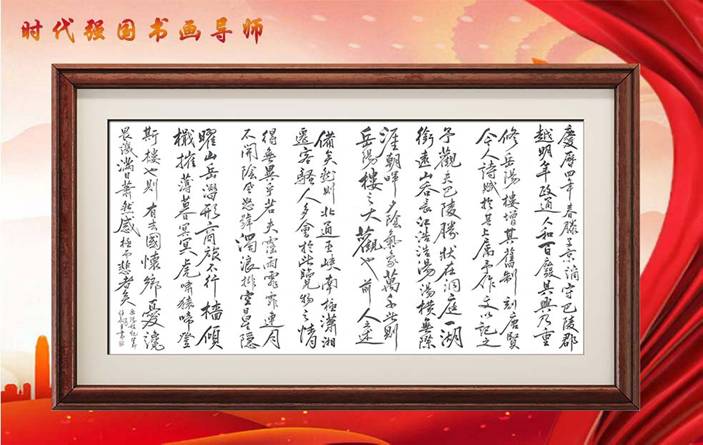 时代强国书画导师
慶曆四年春滕子京謫守巴陵郡
越明年政通人和百廢具興乃重
修岳陽樓增其舊制刻唐賢
今人詩賦於其上屬予作文以記之
予觀夫巴陵勝狀在洞庭一湖
銜遠山吞長江浩浩湯湯橫無際
涯朝暉夕陰氣象萬千此則
岳陽樓之大觀也前人之述
備矣然則北通巫峽南極瀟湘
遷客騷人多會於此覽物之情
得無異乎若夫霪雨霏霏連月
不開陰風怒號濁浪排空星隱
曜山岳潛形商旅不行檣傾
楫摧薄暮冥冥虎嘯猿啼登
斯樓也則有去國懷鄉憂讒
畏譏滿目蕭然感極而悲者矣
岳陽樓記